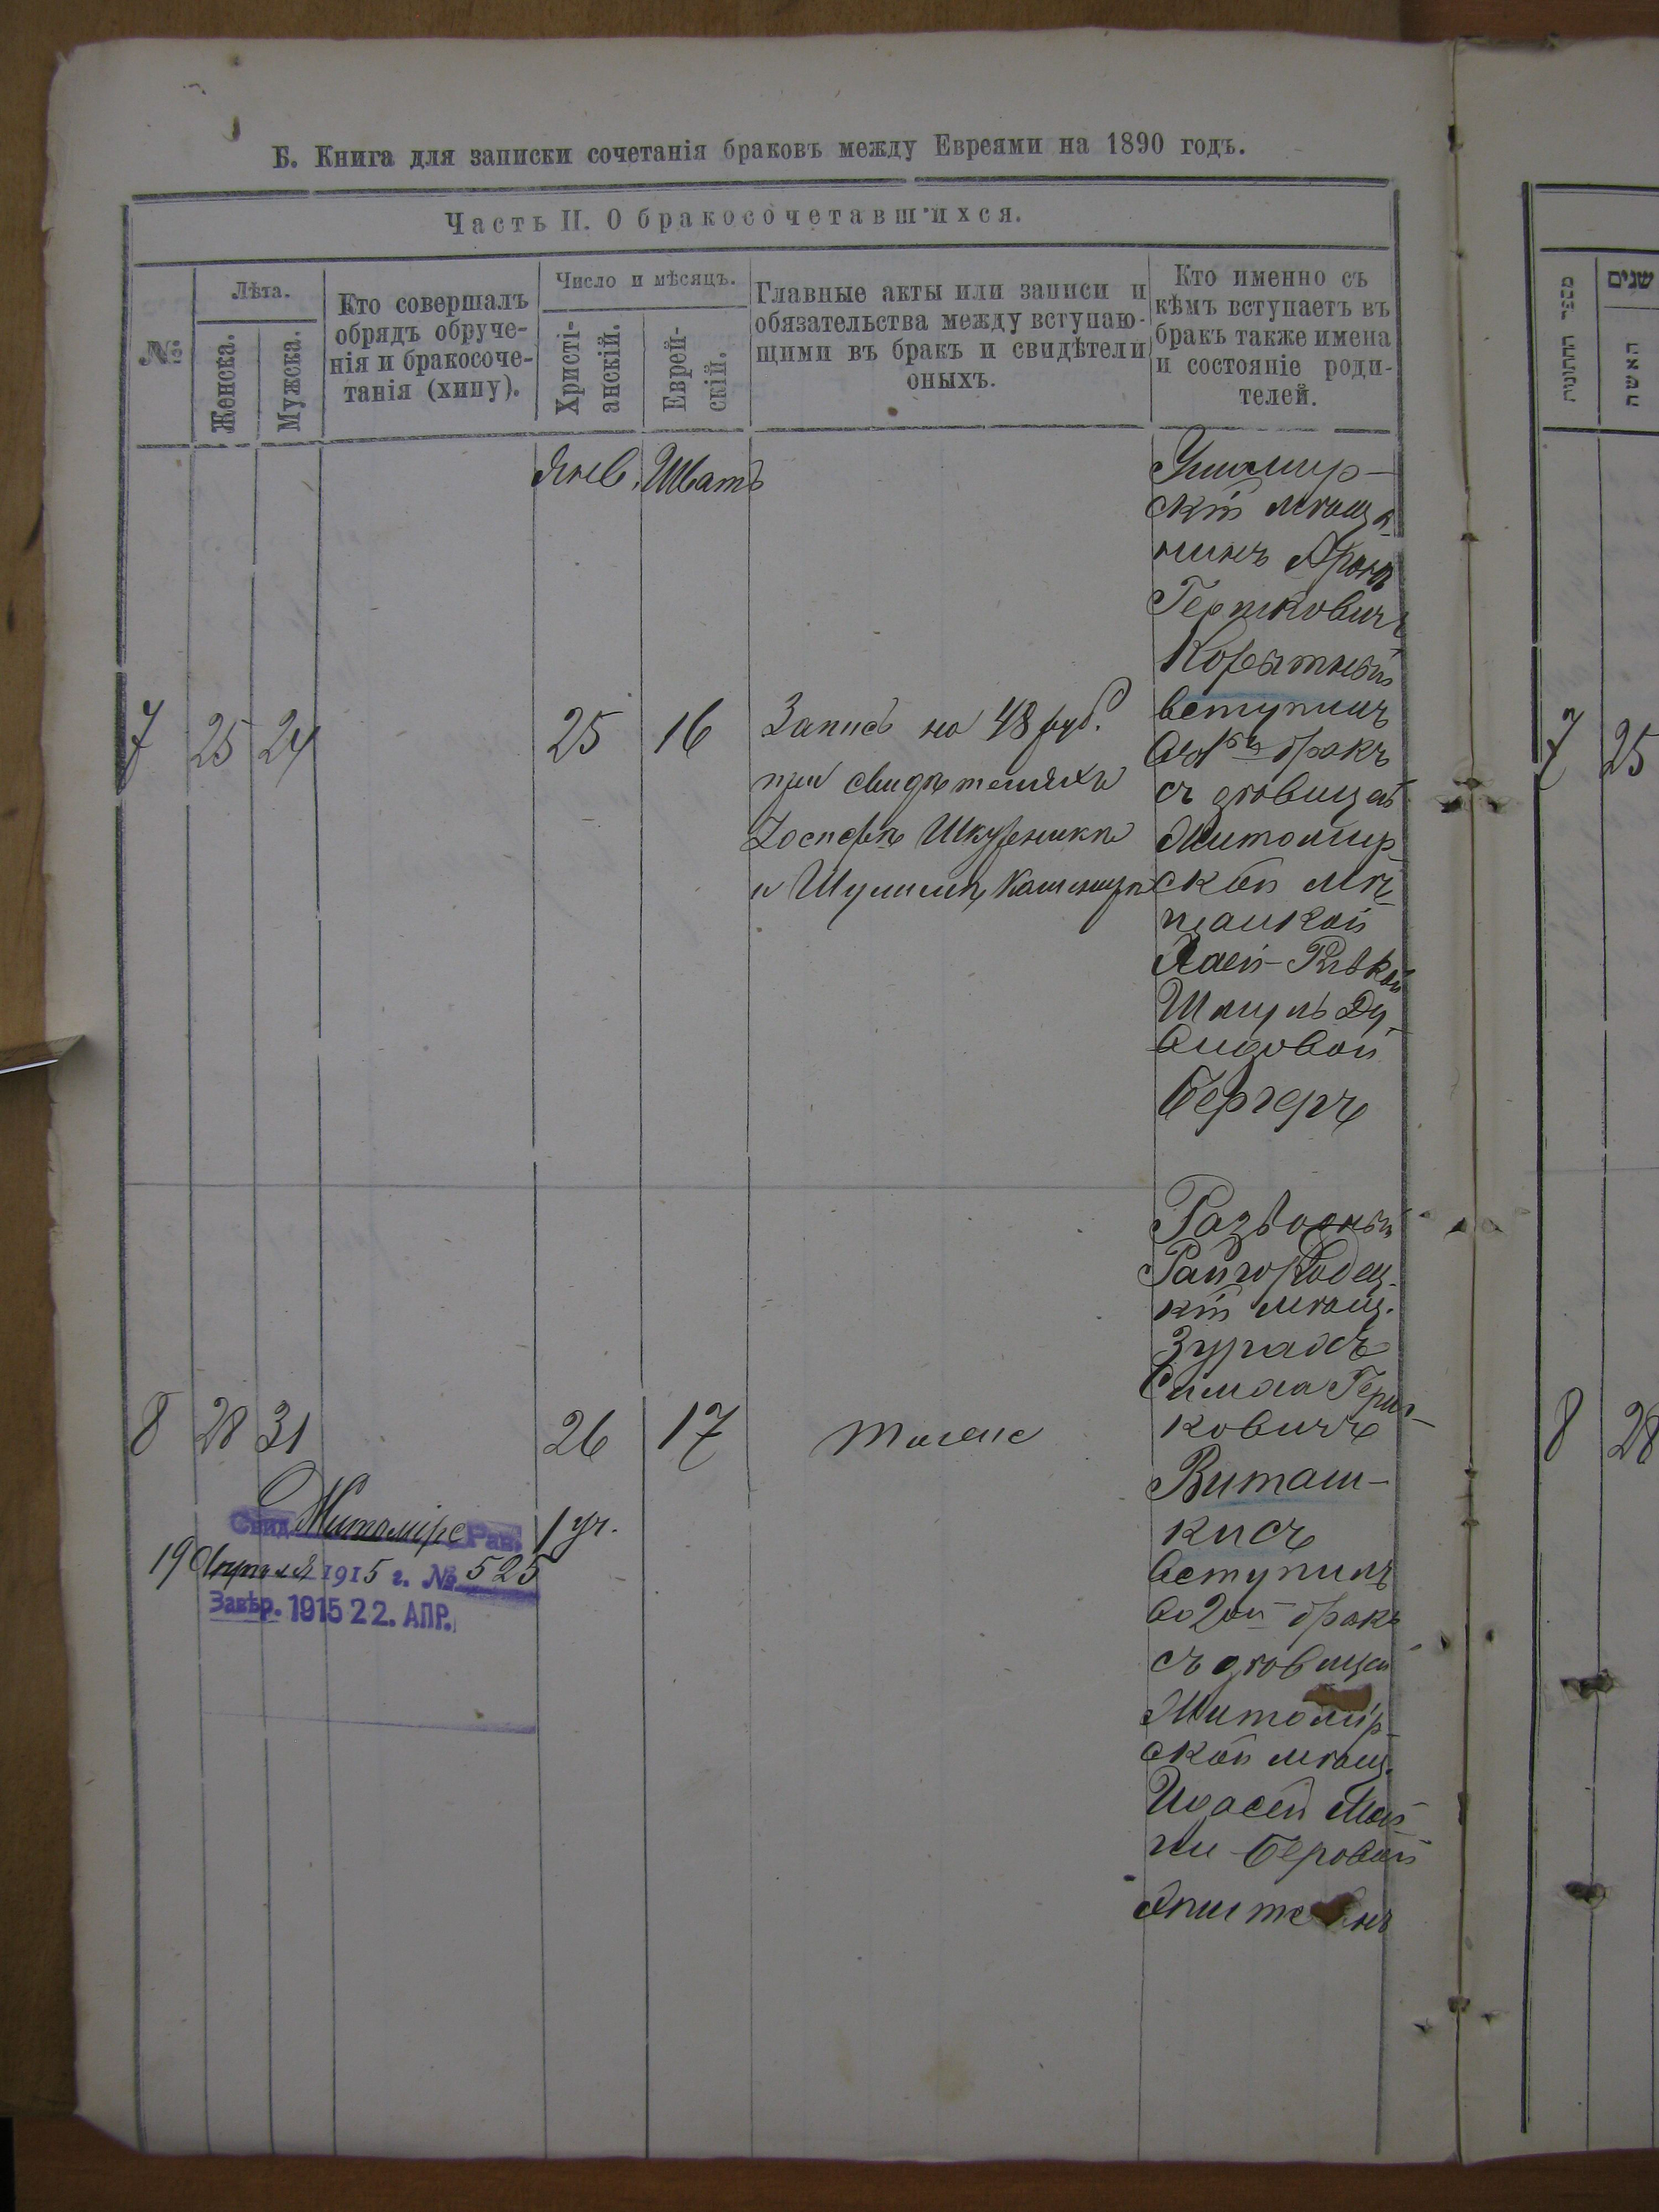 Б. Книга для записки сочетанія браковъ между Евреями на 1890 годъ.
Часть II. О бракосочетавшихся.
№
Лѣта.
Женска.
Мужска.
Кто совершалъ
обрядъ обруче-
нія и бракосоче-
танія (хипу).
Число и мѣсяцъ.
Христі-
анскій.
Еврей-
скій.
Главные акты или записи и
обязательства между вступаю-
щими въ бракъ и свидѣтели
оныхъ.
Кто именно съ
кѣмъ вступаетъ въ
бракъ также имена
и состояніе роди-
телей.
Янв. Шватъ
7 25 24 25 16
Запись на 48 руб.
при свидѣтеляхъ
Іосифѣ Шкурникѣ
и
Ушомир-
скій мѣща-
нинъ Аронъ
Гершковичъ
Корытный
вступилъ
въ 1й бракъ
съ дѣвицей
Житомир-
ской мѣ-
щанкой
Хаей-Ривкой
Шмуль Ду-
видовой
Бергеръ
8 28 31 26 17 тоже
Разводный
Райгородец-
кій мѣщ.
Симха Герш-
ковичъ
Виташ-
кисъ
вступилъ
во 2ой бракъ
съ дѣвицей
Житомір-
ской мѣщ.
Идасей Мой-
ши-Беровой
Свид. Житомірс Рав. 1 уч.
19 Апрѣля 1915 г. № 525
Завѣр. 1915 22. АПР.
מספר החתונות
שנים
האשה
7 25
8 28